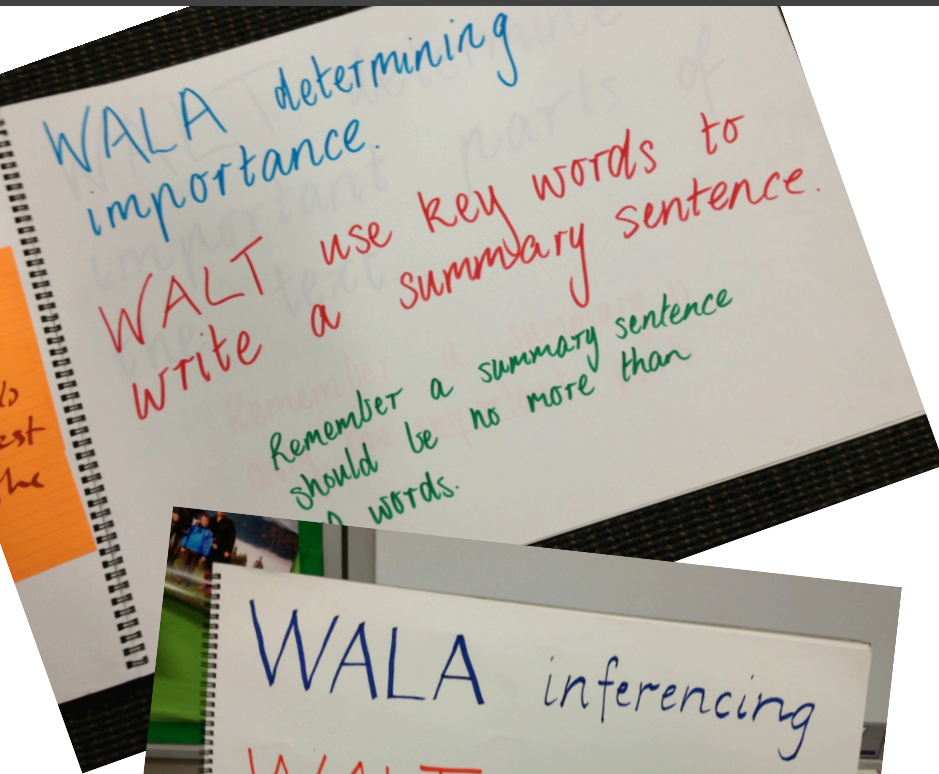 WALA determining
importance.
WALT use key words to
write a summary sentence.
Remember a summary sentence
should be no more than
words.
est
the
WALA inferencing
WALT